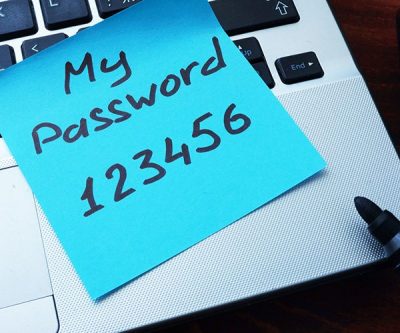 My
Password
123456
End